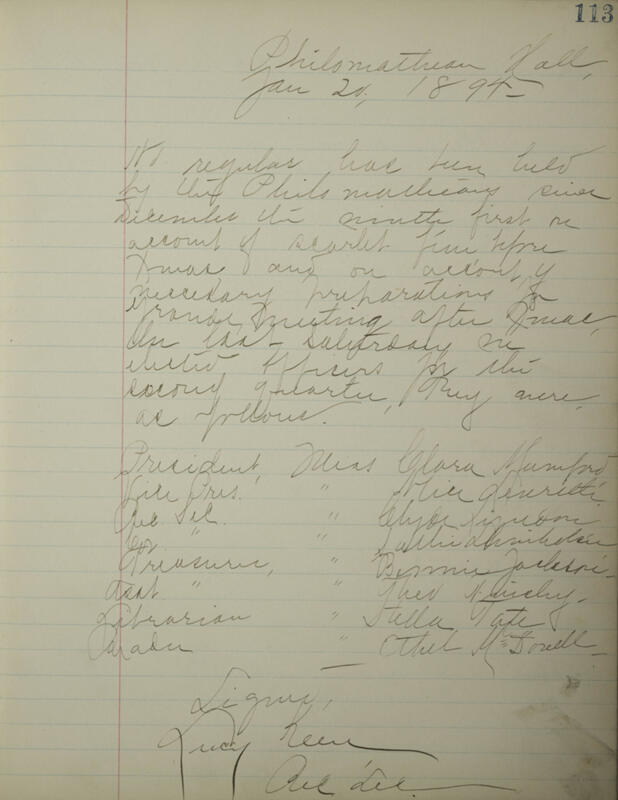 113
Philomathean Hall,
Jan 20, 1894
No regular has been held
by the Philomatheans since
December the ninth first on
account of scarlet fever before
Xmas and on account of
necessary preparations for
Grand Meeting after Xmas,
On last Saturday we
elected Officers for the
second quarter, they were,
as follows.
President, Miss Clara Mumford
Vice Pres. " Alice
Rec Sec. " Clyde
Cor " " Sallie
Treasurer, " Bennie Jackson
Asst " " Theo
Librarian " Stella Tate
Reader " Ethel McDowell
Signed,
Lucy Keen
Rec Sec.